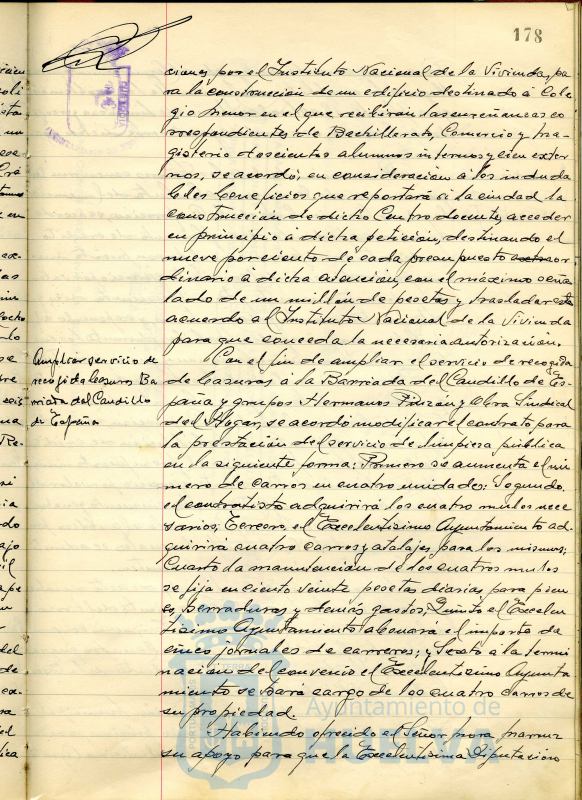 178
ciones, por el Instituto Nacional de la Vivienda, pa
ra la construcción de un edificio destinado á Cole
gio Menor en el que recibirán las enseñanzas co
rrespondientes de Bachillerato, Comercio y Ma
gisterio doscientos alumnos internos y cien exter
nos, se acordó, en consideración á los induda
bles beneficios que reportará á la ciudad la
construcción de dicho Centro docente, acceder
en principio á dicha petición, destinando el
nueve por ciento de cada presupuesto extraor
dinario á dicha atención, con el máximo seña
lado de un millón de pesetas y trasladar este
acuerdo al Instituto Nacional de la Vivienda
para que conceda la necesaria autorización.
Ampliar servicio de
recogida basuras Ba
rriada del Caudillo
de España
Con el fin de ampliar el servicio de recogida
de basuras á la Barriada del Caudillo de Es
paña y grupos Hermanos Pinzón y Obra Sindical
del Hogar, se acordó modificar el contrato para
la prestación del servicio de limpieza pública
en la siguiente forma: Primero se aumenta el nú
mero de carros en cuatro unidades; Segundo,
el contratista adquirirá los cuatro mulos nece
sarios; Tercero, el Excelentísimo Ayuntamiento ad
quirirá cuatro carros y atalajes para los mismos;
Cuarto la manutención de los cuatros mulos
se fija en ciento veinte pesetas diarias, para pien
so, herraduras y demás gastos; Quinto el Excelen
tísimo Ayuntamiento abonará el importe de
cinco jornales de carreros; y Sexto á la termi
nación del convenio el Excelentísimo Ayunta
miento se hará cargo de los cuatro carros de
su propiedad.
Habiendo ofrecido el Señor
su apoyo para que la Excelentísima Diputación
Ayuntamiento de
HUELVA